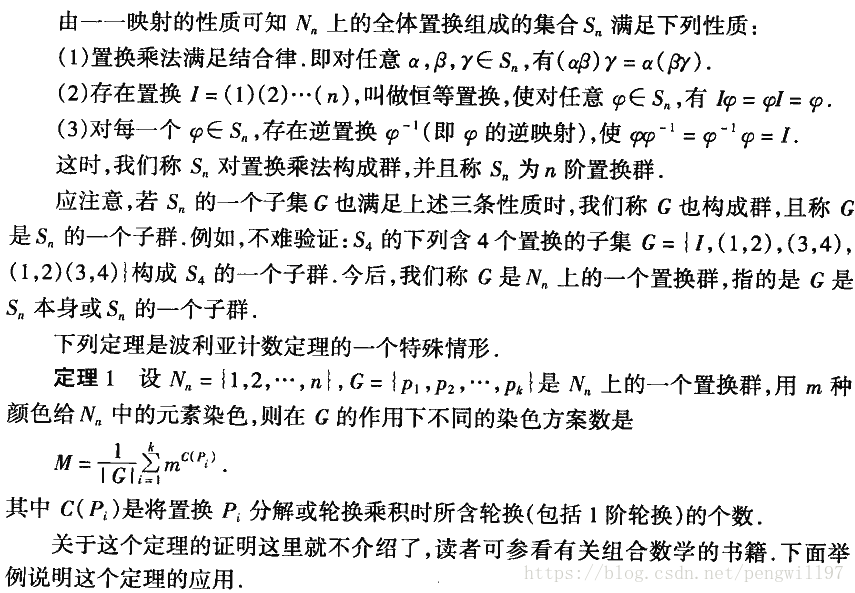 由一一映射的性质可知 Nₙ 上的全体置换组成的集合 Sₙ 满足下列性质:
(1)置换乘法满足结合律.即对任意 α,β,γ∈Sₙ,有(αβ)γ=α(βγ).
(2)存在置换 I=(1)(2)…(n),叫做恒等置换,使对任意 φ∈Sₙ,有 Iφ=φI=φ.
(3)对每一个 φ∈Sₙ,存在逆置换 φ⁻¹(即 φ 的逆映射),使 φφ⁻¹=φ⁻¹φ=I.
这时,我们称 Sₙ 对置换乘法构成群,并且称 Sₙ 为 n 阶置换群.
应注意,若 Sₙ 的一个子集 G 也满足上述三条性质时,我们称 G 也构成群,且称 G
是 Sₙ 的一个子群.例如,不难验证:S₄ 的下列含 4 个置换的子集 G={I,(1,2),(3,4),
(1,2)(3,4)}构成 S₄ 的一个子群.今后,我们称 G 是 Nₙ 上的一个置换群,指的是 G 是
Sₙ 本身或 Sₙ 的一个子群.
下列定理是波利亚计数定理的一个特殊情形.
定理1 设 Nₙ={1,2,…,n},G={p₁,p₂,…,pₖ}是 Nₙ 上的一个置换群,用 m 种
颜色给 Nₙ 中的元素染色,则在 G 的作用下不同的染色方案数是
M=1/|G| ∑ᵢ₌₁ᵏ m^{C(Pᵢ)}.
其中 C(Pᵢ)是将置换 Pᵢ 分解或轮换乘积时所含轮换(包括 1 阶轮换)的个数.
关于这个定理的证明这里就不介绍了,读者可参看有关组合数学的书籍.下面举
例说明这个定理的应用.
https://blog.csdn.net/pengwill97